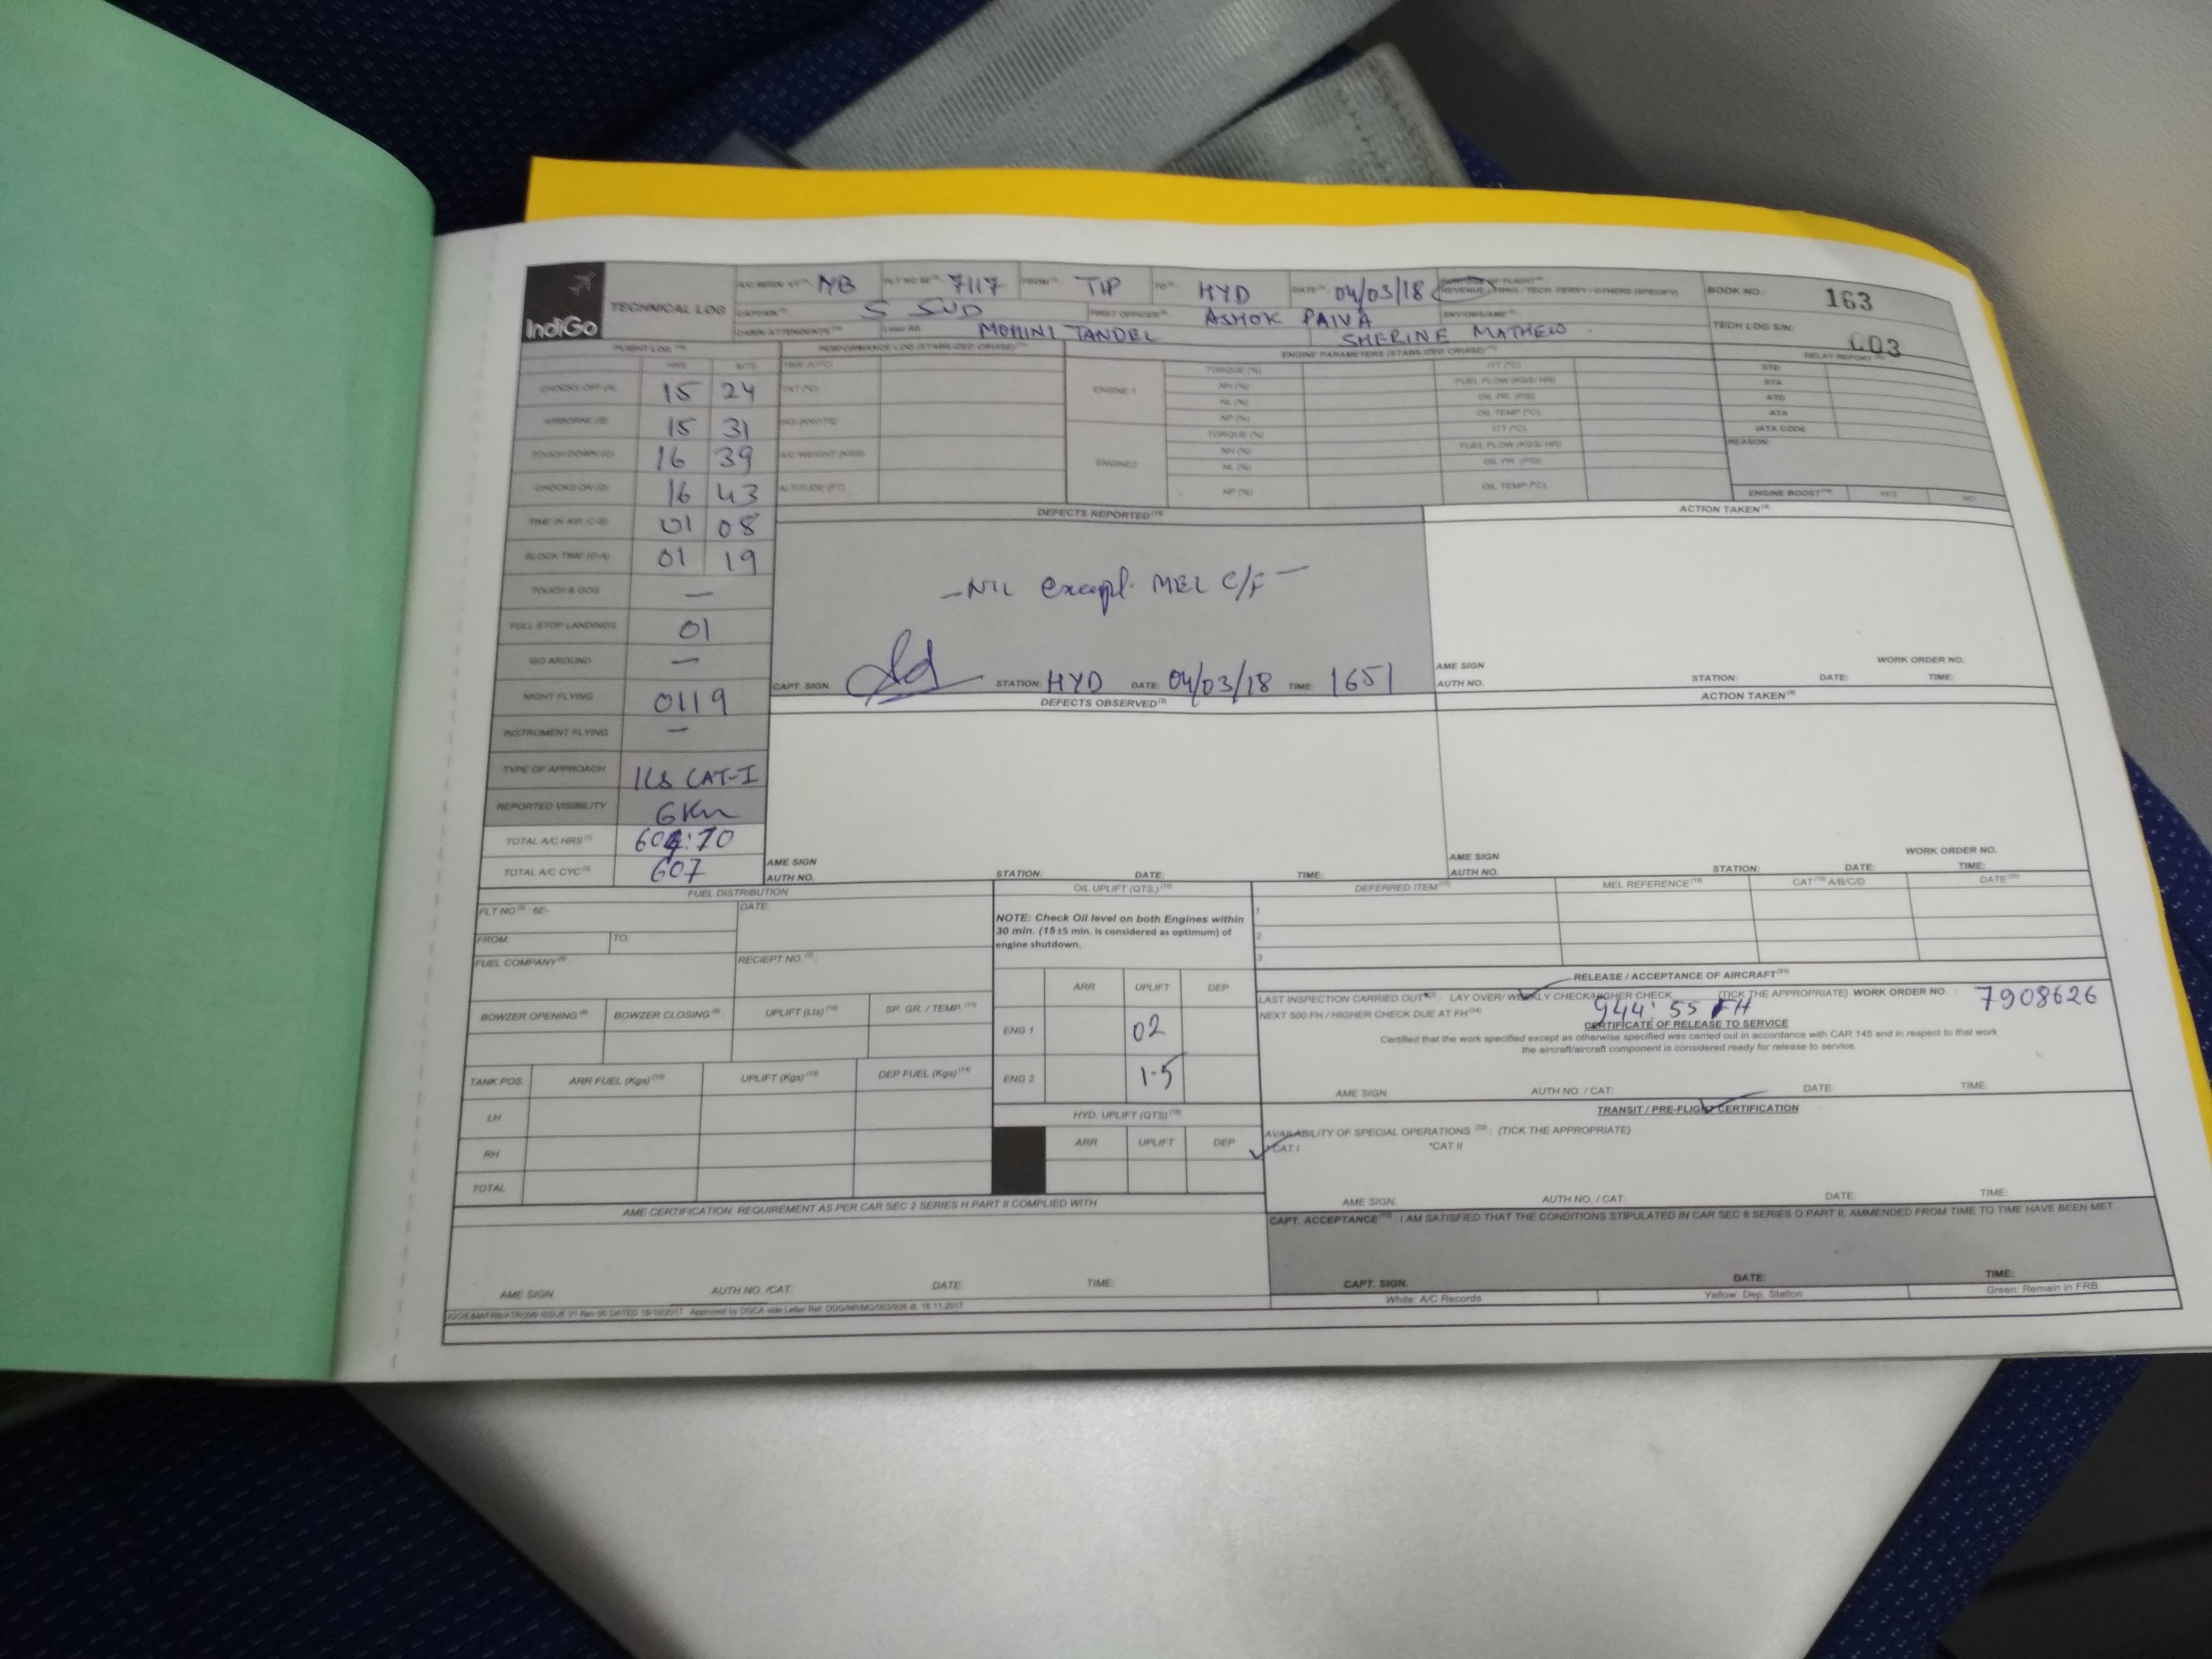 IndiGo
TECHNICAL LOG
7117 FROM TIP TO HYD DATE 04/03/18
BOOK NO.: 163
CAPTAIN S SUD FIRST OFFICER ASHOK PAIVA
CABIN ATTENDANTS MOHINI TANDEL SHERINE MATHEW
TECH LOG S/N: 003
FLIGHT LOG PERFORMANCE LOG (STABILIZED CRUISE) ENGINE PARAMETERS (STABILIZED CRUISE) DELAY REPORT
HRS MTS
CHOCKS OFF (A) 15 24
AIRBORNE (B) 15 31
TOUCH DOWN (C) 16 39
CHOCKS ON (D) 16 43
TIME IN AIR (C-B) 01 08
BLOCK TIME (D-A) 01 19
TOUCH & GOS —
FULL STOP LANDINGS 01
GO AROUND —
NIGHT FLYING 0119
INSTRUMENT FLYING —
TYPE OF APPROACH ILS CAT-I
REPORTED VISIBILITY 6Km
TOTAL A/C HRS
TOTAL A/C CYC 607
TIME (UTC)
A/C WEIGHT (KGS)
ALTITUDE (FT)
ENGINE 1
TORQUE (%) ITT (°C)
NH (%) FUEL FLOW (KGS/HR)
NL (%) OIL PR. (PSI)
NP (%) OIL TEMP (°C)
ENGINE2
TORQUE (%) ITT (°C)
NH (%) FUEL FLOW (KGS/HR)
NL (%) OIL PR. (PSI)
NP (%) OIL TEMP (°C)
STD
STA
ATD
ATA
IATA CODE
REASON:
ENGINE BOOST YES NO
DEFECTS REPORTED ACTION TAKEN
-NIL except MEL C/F-
CAPT. SIGN. STATION: HYD DATE: 04/03/18 TIME: 1651
AME SIGN WORK ORDER NO.
AUTH NO. STATION: DATE: TIME:
DEFECTS OBSERVED ACTION TAKEN
AME SIGN
AUTH NO. STATION: DATE: TIME:
AME SIGN WORK ORDER NO.
AUTH NO. STATION: DATE: TIME:
FUEL DISTRIBUTION
FLT NO : 6E- DATE:
FROM: TO:
FUEL COMPANY : RECIEPT NO. :
BOWZER OPENING BOWZER CLOSING UPLIFT (Lts) SP. GR. / TEMP.
TANK POS. ARR FUEL (Kgs) UPLIFT (Kgs) DEP FUEL (Kgs)
LH
RH
TOTAL
OIL UPLIFT (QTS.)
NOTE: Check Oil level on both Engines within
30 min. (15±5 min. is considered as optimum) of
engine shutdown.
ARR UPLIFT DEP
ENG 1 02
ENG 2 1.5
HYD. UPLIFT (QTS)
ARR UPLIFT DEP
DEFERRED ITEM MEL REFERENCE CAT A/B/C/D DATE
1
2
3
RELEASE / ACCEPTANCE OF AIRCRAFT
LAST INSPECTION CARRIED OUT : LAY OVER/ WEEKLY CHECK/HIGHER CHECK (TICK THE APPROPRIATE) WORK ORDER NO. : 7908626
NEXT 500 FH / HIGHER CHECK DUE AT FH 944:55 FH
CERTIFICATE OF RELEASE TO SERVICE
Certified that the work specified except as otherwise specified was carried out in accordance with CAR 145 and in respect to that work
the aircraft/aircraft component is considered ready for release to service.
AME SIGN. AUTH NO. / CAT: DATE: TIME:
TRANSIT / PRE-FLIGHT CERTIFICATION
AVAILABILITY OF SPECIAL OPERATIONS : (TICK THE APPROPRIATE)
*CAT I *CAT II
AME SIGN. AUTH NO. / CAT: DATE: TIME:
AME CERTIFICATION: REQUIREMENT AS PER CAR SEC 2 SERIES H PART II COMPLIED WITH
AME SIGN. AUTH NO. /CAT: DATE: TIME:
CAPT. ACCEPTANCE : I AM SATISFIED THAT THE CONDITIONS STIPULATED IN CAR SEC 8 SERIES O PART II, AMMENDED FROM TIME TO TIME HAVE BEEN MET.
CAPT. SIGN. DATE: TIME:
White: A/C Records Yellow: Dep. Station Green: Remain in FRB
ISSUE 01 Rev 00 DATED 16/10/2017 Approved by DGCA vide Letter Ref. dt. 16.11.2017